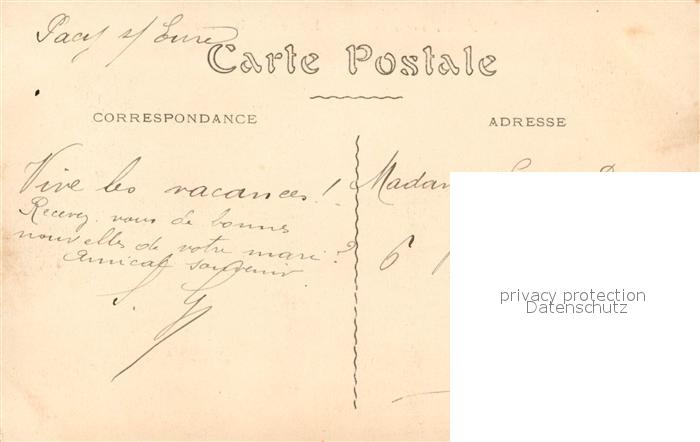 Pacy s/ Eure
Carte Postale
CORRESPONDANCE
ADRESSE
Vive les vacances!
Recevez-vous de bonnes
nouvelles de votre mari?
Amical souvenir
Madam
6
privacy protection
Datenschutz